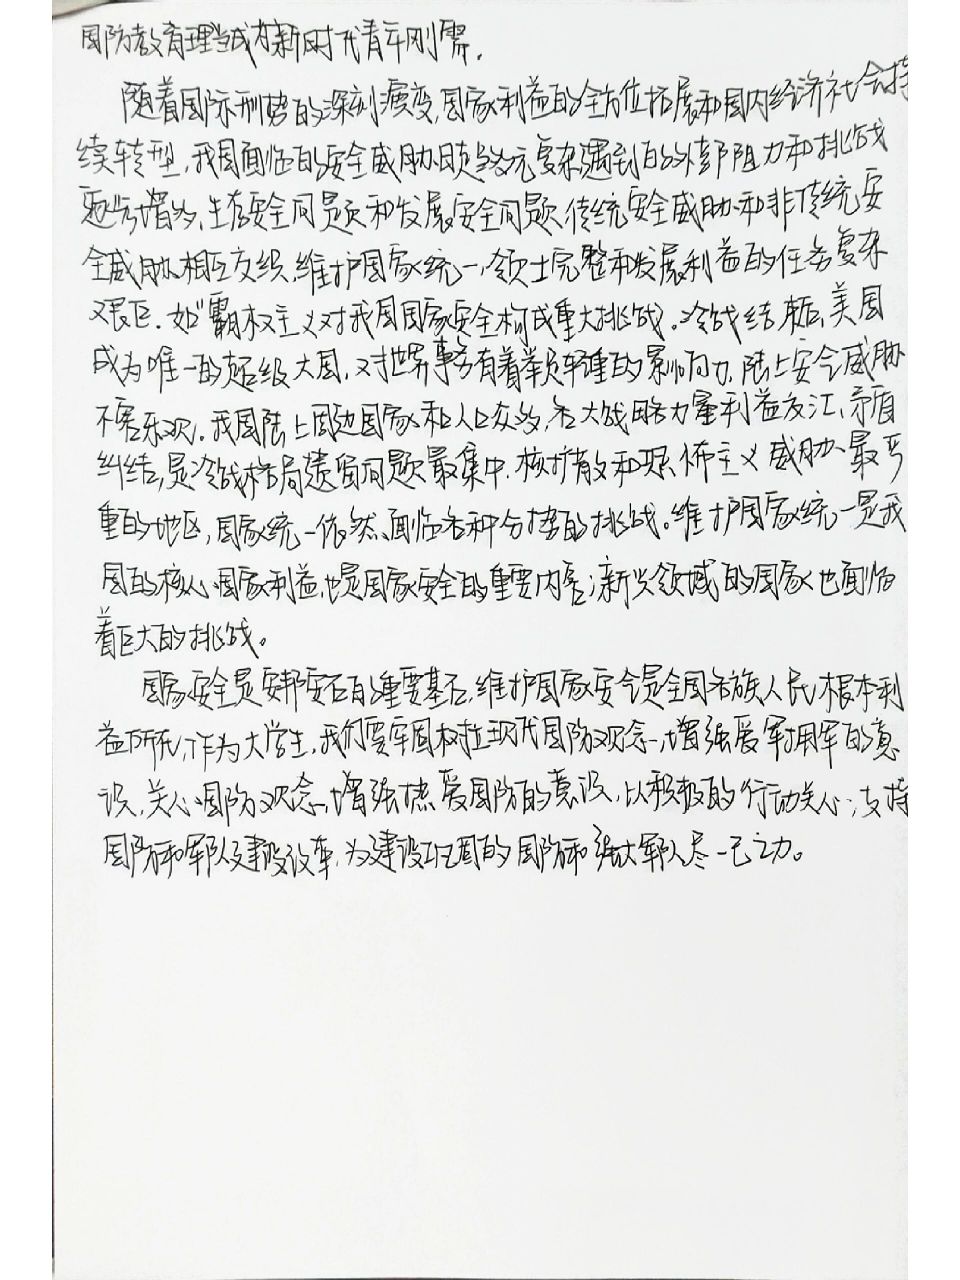 国防教育理当成为新时代青年刚需.
随着国际形势的深刻演变,国家利益的全方位拓展和国内经济社会持
续转型,我国面临的安全威胁日趋多元复杂,遇到的外部阻力和挑战
逐渐增多,生存安全问题和发展安全问题、传统安全威胁和非传统安
全威胁相互交织,维护国家统一,领土完整和发展利益的任务复杂
艰巨.如"霸权主义对我国国家安全构成重大挑战。冷战结束后,美国
成为唯一的超级大国,对世界事务有着举足轻重的影响力,陆上安全威胁
不容乐观.我国陆上周边国家和人口众多,各大战略力量利益交汇、矛盾
纠结,是冷战格局遗留问题最集中.核扩散和恐怖主义威胁最严
重的地区,国家统一依然面临各种分裂的挑战。维护国家统一是我
国的核心国家利益,也是国家安全的重要内容;新兴领域的国家也面临
着巨大的挑战。
国家安全是安邦定石的重要基石,维护国家安全是全国各族人民根本利
益所在,作为大学生,我们要牢固树立现代国防观念,增强爱军拥军的意
识,关心国防观念,增强热爱国防的意识,以积极的行动关心;支持
国防和军队建设改革,为建设巩固的国防和强大军队尽一己之力。